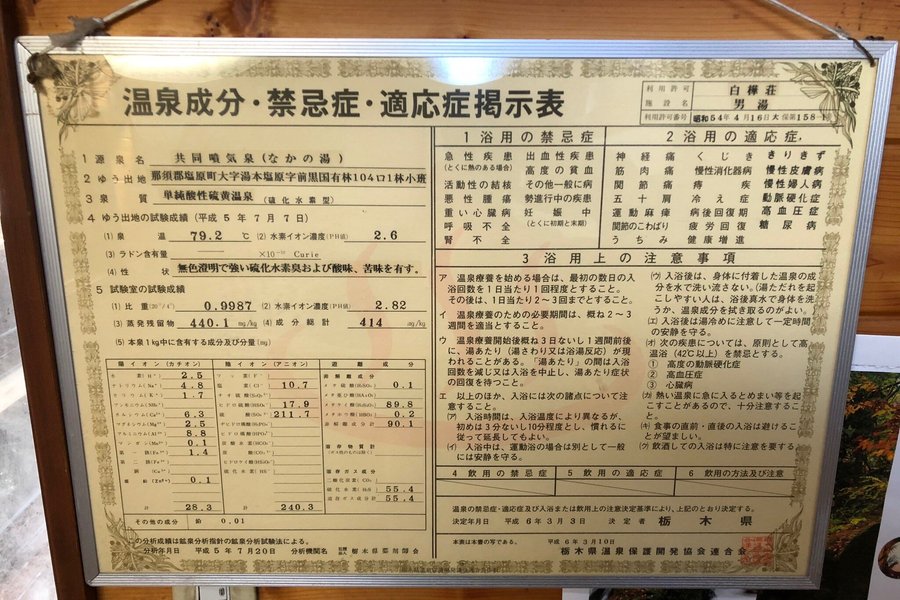 温泉成分・禁忌症・適応症掲示表
利用許可
施設名
白樺荘
男湯
利用許可番号 昭和54年4月16日大保第158-1
1 源泉名 共同噴気泉(なかの湯)
2 ゆう出地 那須郡塩原町大字湯本塩原字前黒国有林104ロ1林小班
3 泉質 単純酸性硫黄温泉(硫化水素型)
4 ゆう出地の試験成績(平成5年7月7日)
(1) 泉温 79.2 ℃ (2) 水素イオン濃度(PH値) 2.6
(3) ラドン含有量 ×10⁻¹⁰ Curie
(4) 性状 無色澄明で強い硫化水素臭および酸味、苦味を有す。
5 試験室の試験成績
(1) 比重(20°/4°) 0.9987 (2) 水素イオン濃度(PH値) 2.82
(3) 蒸発残留物 440.1 mg/kg (4) 成分総計 414 mg/kg
(5) 本泉1kg中に含有する成分及び分量(mg)
陽イオン(カチオン)
水素(H⁺) 2.5
ナトリウム(Na⁺) 4.8
カリウム(K⁺) 1.7
アンモニウム(NH₄⁺)
カルシウム(Ca²⁺) 6.3
マグネシウム(Mg²⁺) 2.5
アルミニウム(Al³⁺) 8.8
マンガン(Mn²⁺) 0.1
第一鉄(Fe²⁺) 1.4
第二鉄(Fe³⁺)
銅(Cu²⁺)
亜鉛(Zn²⁺) 0.1
計 28.3
陰イオン(アニオン)
フッ素(F⁻)
塩素(Cl⁻) 10.7
ヒドロ硫酸(HSO₄⁻) 17.9
硫酸(SO₄²⁻) 211.7
計 240.3
遊離成分
非解離成分
メタ硅酸(H₂SiO₃) 89.8
メタホウ酸(HBO₂) 0.2
非解離成分計 90.1
溶存ガス成分
二酸化炭素(CO₂)
硫化水素(H₂S) 55.4
溶存ガス成分計 55.4
その他の成分 鉛 0.01
の分析成績は鉱泉分析法指針の鉱泉分析試験法による。
分析年月日 平成5年7月20日 分析機関名 栃木県薬剤師会
1 浴用の禁忌症
急性疾患 出血性疾患
(とくに熱のある場合) 高度の貧血
活動性の結核 その他一般に病
悪性腫瘍 勢進行中の疾患
重い心臓病 妊娠中
呼吸不全 (とくに初期と末期)
腎不全
2 浴用の適応症
神経痛 くじき きりきず
筋肉痛 慢性消化器病 慢性皮膚病
関節痛 痔疾 慢性婦人病
五十肩 冷え症 動脈硬化症
運動麻痺 病後回復期 高血圧症
関節のこわばり 疲労回復 糖尿病
うちみ 健康増進
3 浴用上の注意事項
ア 温泉療養を始める場合は、最初の数日の入
浴回数を1日当たり1回程度とすること。
その後は、1日当たり2〜3回までとすること。
イ 温泉療養のための必要期間は、概ね2〜3
週間を適当とすること。
ウ 温泉療養開始後概ね3日ないし1週間前後
に、湯あたり(湯さわり又は浴湯反応)が現
われることがある。「湯あたり」の間は入浴
回数を減じ又は入浴を中止し、湯あたり症状
の回復を待つこと。
エ 以上のほか、入浴には次の諸点について注
意すること。
(ア) 入浴時間は、入浴温度により異なるが、
初めは3分ないし10分程度とし、慣れるに
従って延長してもよい。
(イ) 入浴中は、運動浴の場合は別として一般
には安静を守る。
(ウ) 入浴後は、身体に付着した温泉の成
分を水で洗い流さない。(湯ただれを起
こしやすい人は、浴後真水で身体を洗
うか、温泉成分を拭き取るのがよい。)
(エ) 入浴後は湯冷めに注意して一定時間
の安静を守る。
(オ) 次の疾患については、原則として高
温浴(42℃以上)を禁忌とする。
① 高度の動脈硬化症
② 高血圧症
③ 心臓病
(カ) 熱い温泉に急に入るとめまい等を起
こすことがあるので、十分注意するこ
と。
(キ) 食事の直前・直後の入浴は避けるこ
とが望ましい。
(ク) 飲酒しての入浴は特に注意を要する。
4 飲用の禁忌症 5 飲用の適応症 6 飲用の方法及び注意
温泉の禁忌症・適応症及び入浴又は飲用上の注意決定基準により、上記のとおり決定する。
決定年月日 平成6年3月3日 決定者 栃木県
本表は本書の写である。 平成6年3月10日
栃木県温泉保護開発協会連合会